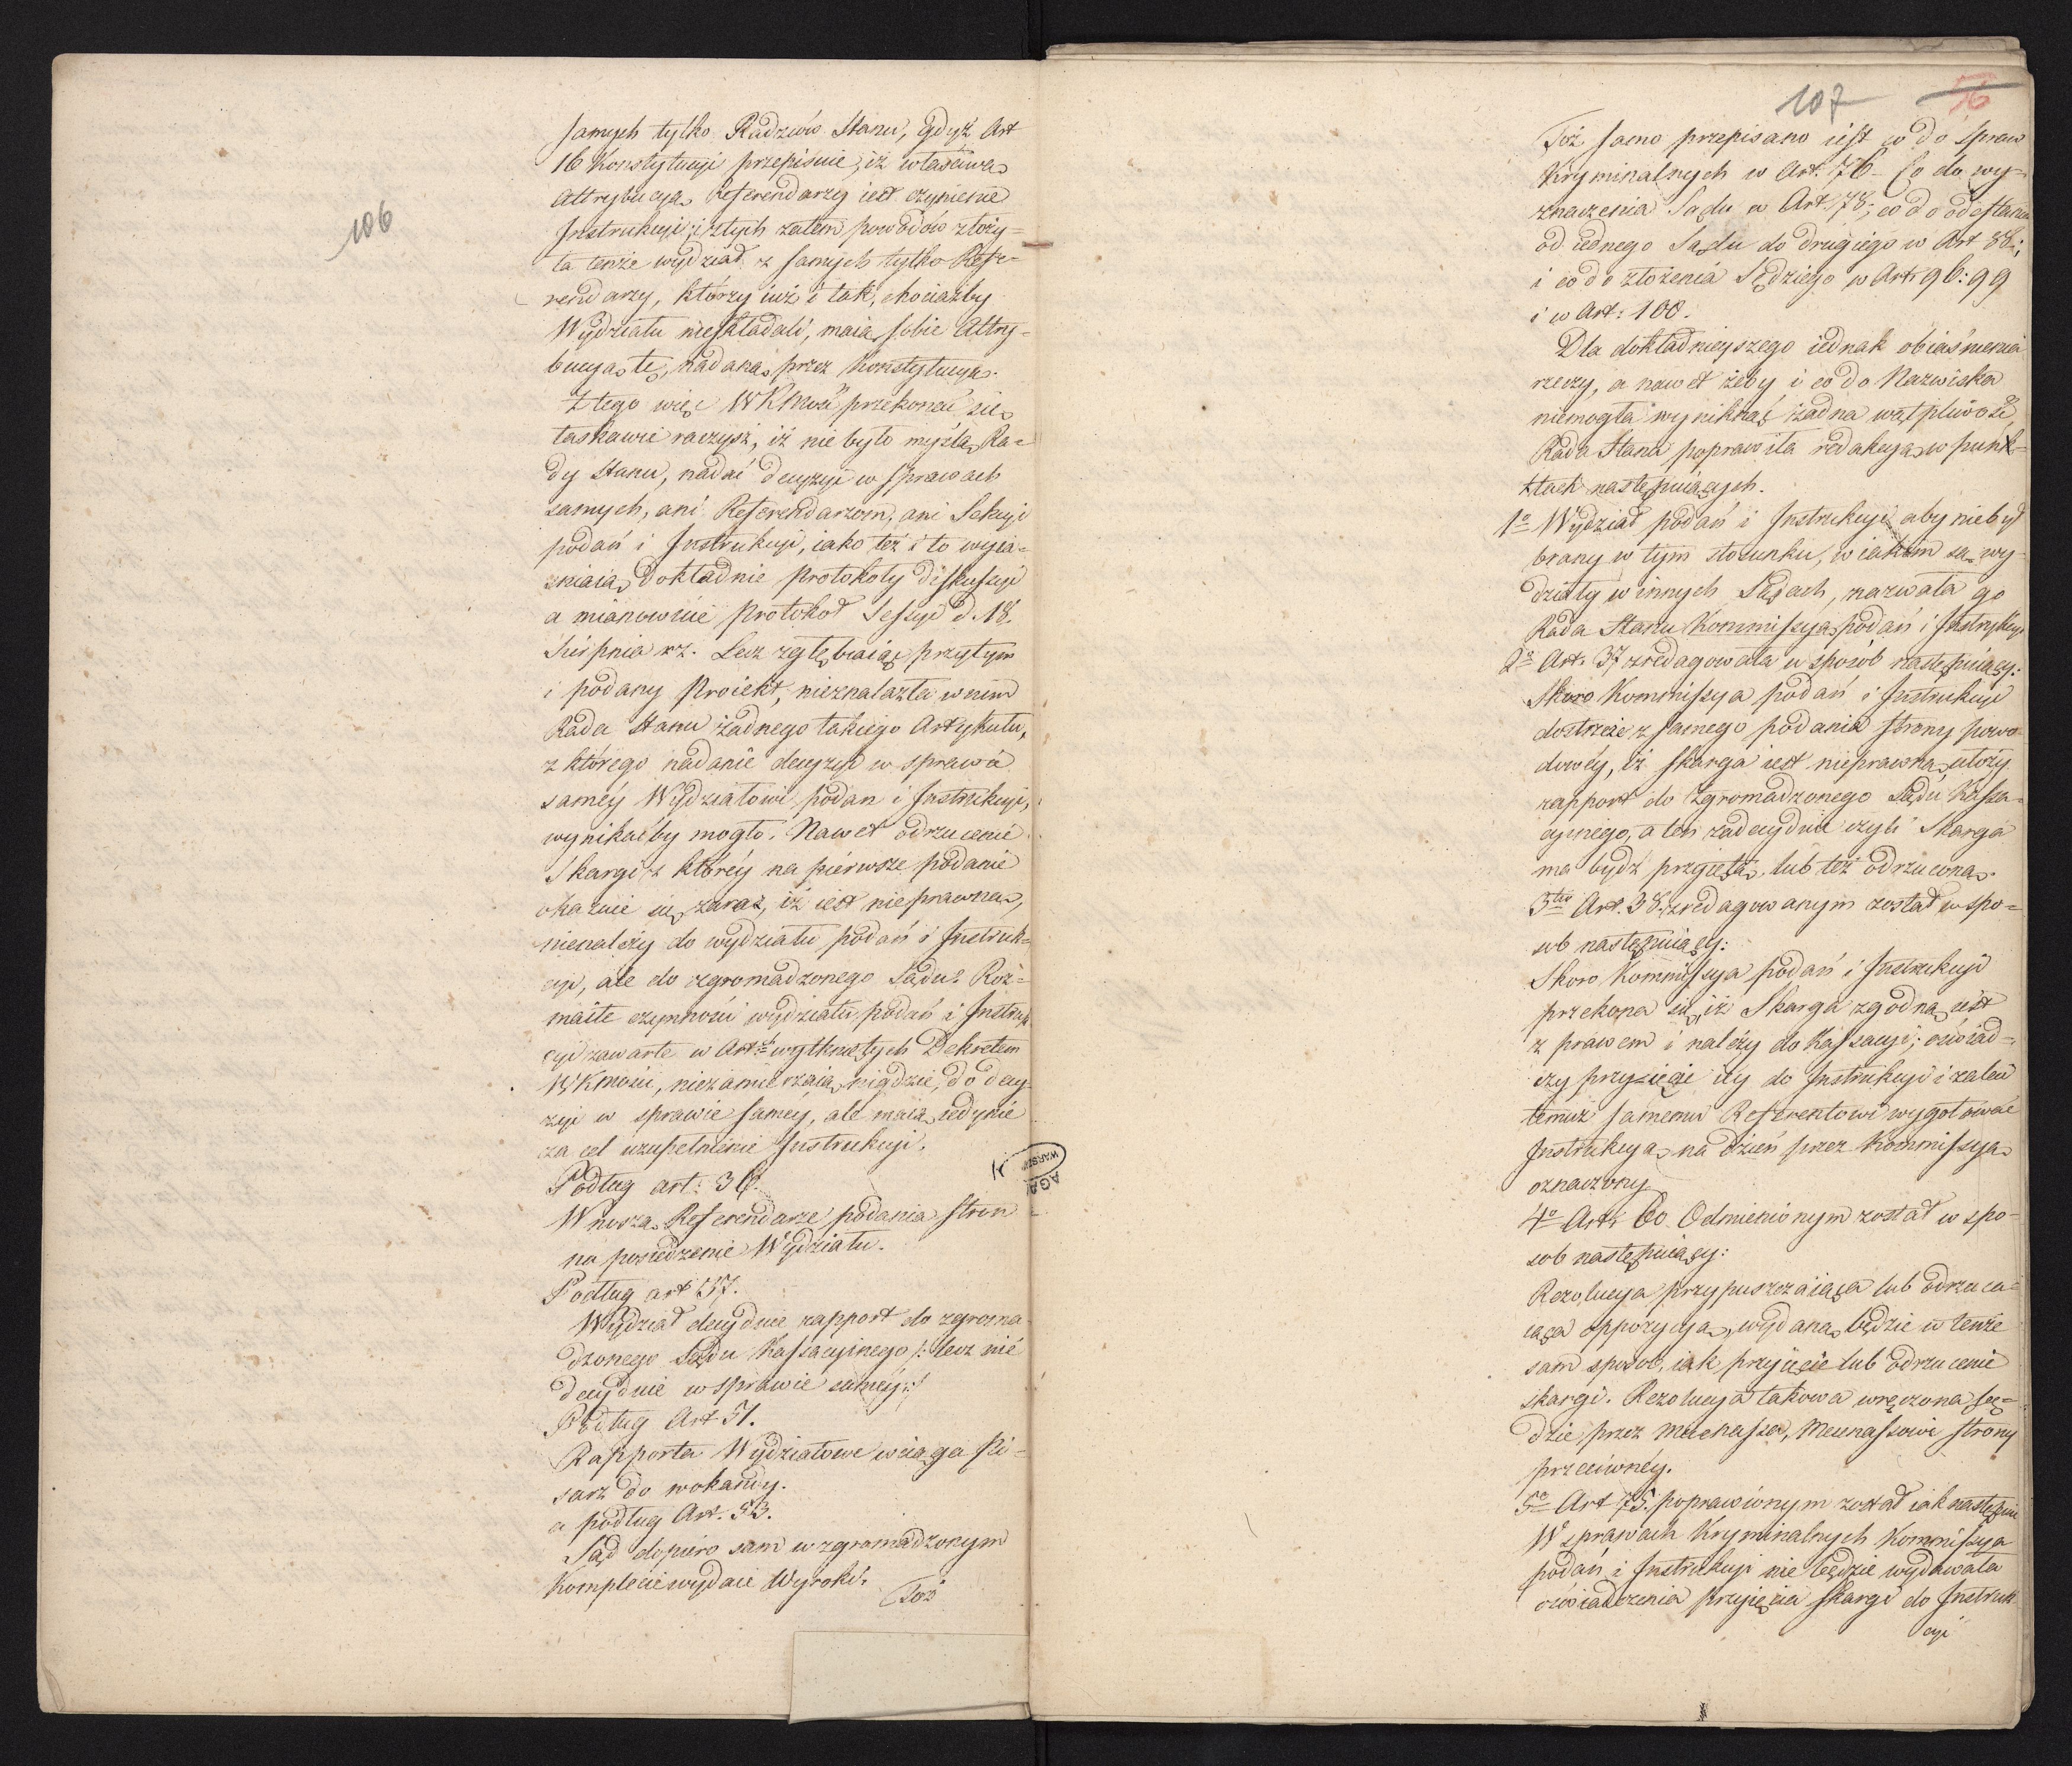 106
samych tylko Radzców Stanu, gdyż Art
16 Konstytucyi przepisuie, iż właściwą
attrybucyą Referendarzy iest czynienie
Instrukcyi; z tych zatem powodów złoży=
ła tenże wydział z samych tylko Refe=
rendarzy, którzy iuż i tak, chociażby
Wydziału nieskładali, maią sobie attry=
bucyą tę, nadaną przez Konstytucyą.
Z tego więc WKMość przekonać się
łaskawie raczysz, iż nie było myślą Ra=
dy Stanu, nadać decyzyi w sprawach
samych, ani Referendarzom, ani Sekcyi
podań i Instrukcyi, iako też i to wyia=
śniaią dokładnie protokoły diskussyi
a mianowicie protokoł Sessyi d. 18.
Sierpnia r.z. Lecz zgłębiaiąc przytym
i podany proiekt, nieznalazła w nim
Rada Stanu żadnego takiego Artykułu,
z którego nadanie decyzyi w sprawie
saméy Wydziałowi podań i Instrukcyi,
wynikać by mogło. Nawet odrzucenie
Skargi z któréy na piérwsze podanie
okazuie się zaraz, iż iest nieprawną,
nienależy do wydziału podań i Instruk=
cyi, ale do zgromadzonego Sądu. Roz=
maite czynności wydziału podań i Instruk
cyi zawarte w Art: wytkniętych Dekretem
WKMości, niezamierzaią nigdzie, do decy=
zyi w sprawie saméy, ale maią iedynie
za cel uzupełnienie Instrukcyi.
Podług art: 36.
Wnoszą Referendarze podania stron
na posiedzenie Wydziału.
Podług art 37.
Wydział decyduie rapport do zgroma
dzonego Sądu Kassacyinego /: lecz nie
decyduie w sprawie saméy :/
Podług Art 51.
Rapporta Wydziałowe wciąga Pi=
sarz do wokandy.
a podług Art. 53.
Sąd dopiero sam w zgromadzonym
Komplecie wydaie Wyroki.
Toż
AGA
WARSZAWA
107
Toż samo przepisano iest co do spraw
Kryminalnych w Art. 76 - Co do wy=
znaczenia Sądu w Art. 78; co do odesłania
od iednego Sądu do drugiego w Art 88;
i co do złożenia Sędziego w Art: 96: 99
i w Art: 100.
Dla dokładnieyszego iednak obiaśnienia
rzeczy, a nawet żeby i co do Nazwiska
niemogła wyniknąć żadna wątpliwość,
Rada Stanu poprawiła redakcyą w punk=
ktach następuiących.
1º Wydział podań i Instrukcyi aby niebył
brany w tym stosunku, w iakim są wy=
działy w innych Sądach, nazwała go
Rada Stanu Kommissyą podań i Instrukcyi
2º Art. 37 zredagowała w sposób następuiący:
Skoro Kommissya podań i Instrukcyi
dostrzeże z samego podania strony powo=
dowéy, iż skarga iest nieprawną, ułoży
rapport do zgromadzonego Sądu Kassa=
cyinego, a ten zadecyduie czyli Skarga
ma bydź przyiętą, lub też odrzuconą.
3tio Art. 38. zredagowanym został w spo=
sob następuiący:
Skoro Kommissya podań i Instrukcyi
przekona się, iż Skarga zgodną iest
z prawem i należy do Kassacyi; oświad=
czy przyięcie iéy do Instrukcyi i zaleci
temuż samemu Referentowi wygotować
Instrukcyą na dzień przez Kommissyą
oznaczony.
4º Art: 60. Odmienionym został w spo=
sob następuiący:
Rezolucya przypuszczaiąca lub odrzuca=
iąca oppozycyą, wydaną będzie w tenże
sam sposób, iak przyięcie lub odrzucenie
skargi. Rezolucya takowa wręczona bę=
dzie przez Mecenassa, Mecenassowi strony
przeciwnéy.
5º Art 75. poprawionym został iak następuie
W sprawach Kryminalnych Kommissya
podań i Instrukcyi nie będzie wydawała
oświadczenia przyięcia skargi do Instruk
cyi